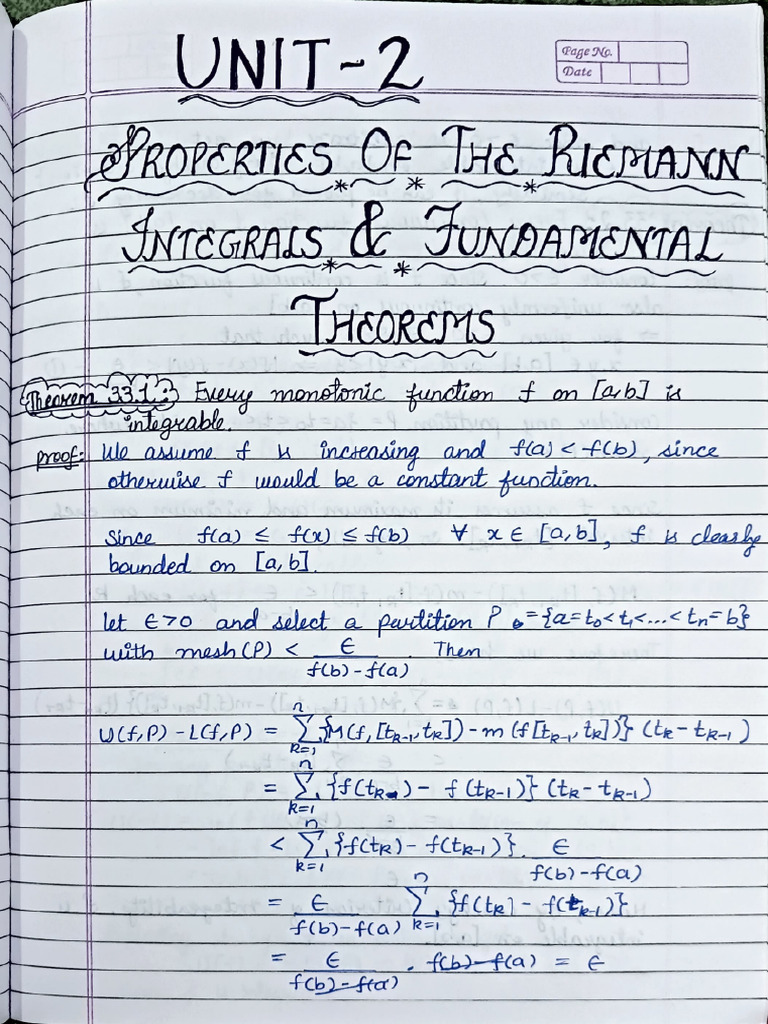 UNIT-2
Page No.
Date
PROPERTIES OF THE RIEMANN
INTEGRALS & FUNDAMENTAL
THEOREMS
Theorem 33.1 : Every monotonic function f on [a,b] is
integrable.
proof: We assume f is increasing and f(a) < f(b), since
otherwise f would be a constant function.
Since f(a) ≤ f(x) ≤ f(b) ∀ x ∈ [a,b], f is clearly
bounded on [a,b].
let ϵ>0 and select a partition P = {a=t₀<t₁<...<tₙ=b}
with mesh(P) < ϵ/(f(b)-f(a)) . Then
U(f,P) - L(f,P) = Σₖ₌₁ⁿ {M(f,[tₖ₋₁,tₖ]) - m(f[tₖ₋₁,tₖ])} (tₖ - tₖ₋₁)
= Σₖ₌₁ⁿ {f(tₖ) - f(tₖ₋₁)} (tₖ - tₖ₋₁)
< Σₖ₌₁ⁿ {f(tₖ) - f(tₖ₋₁)} . ϵ/(f(b)-f(a))
= ϵ/(f(b)-f(a)) Σₖ₌₁ⁿ {f(tₖ) - f(tₖ₋₁)}
= ϵ/(f(b)-f(a)) . f(b)-f(a) = ϵ